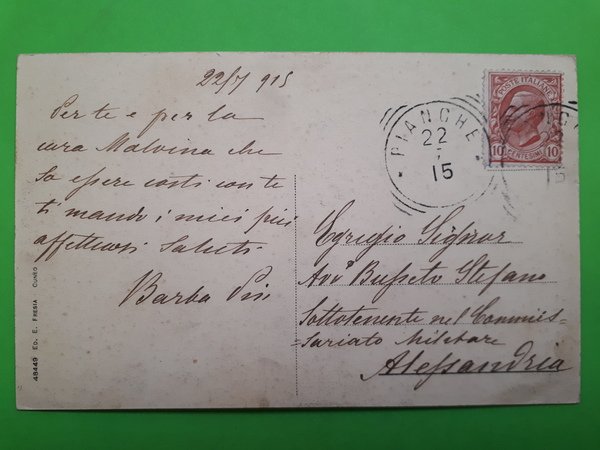 22/7 915
Per te e per la
cara Malvina che
so essere costì con te
ti mando i miei più
affettuosi saluti
Barba Pin
48449 ED. E. FRESIA CUNEO
PIANCHE
22
7
15
POSTE ITALIANE
10 CENTESIMI 10
15
Egregio Signor
Avv. Busseto Stefano
Sottotenente nel Commis=
=sariato Militare
Alessandria